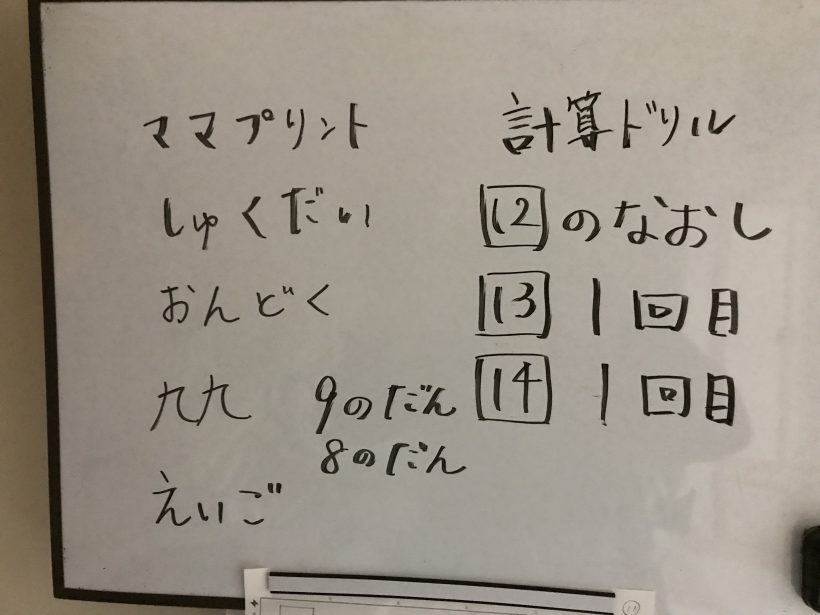 ママプリント
しゅくだい
おんどく
九九 9のだん
8のだん
えいご
計算ドリル
12のなおし
13 1回目
14 1回目